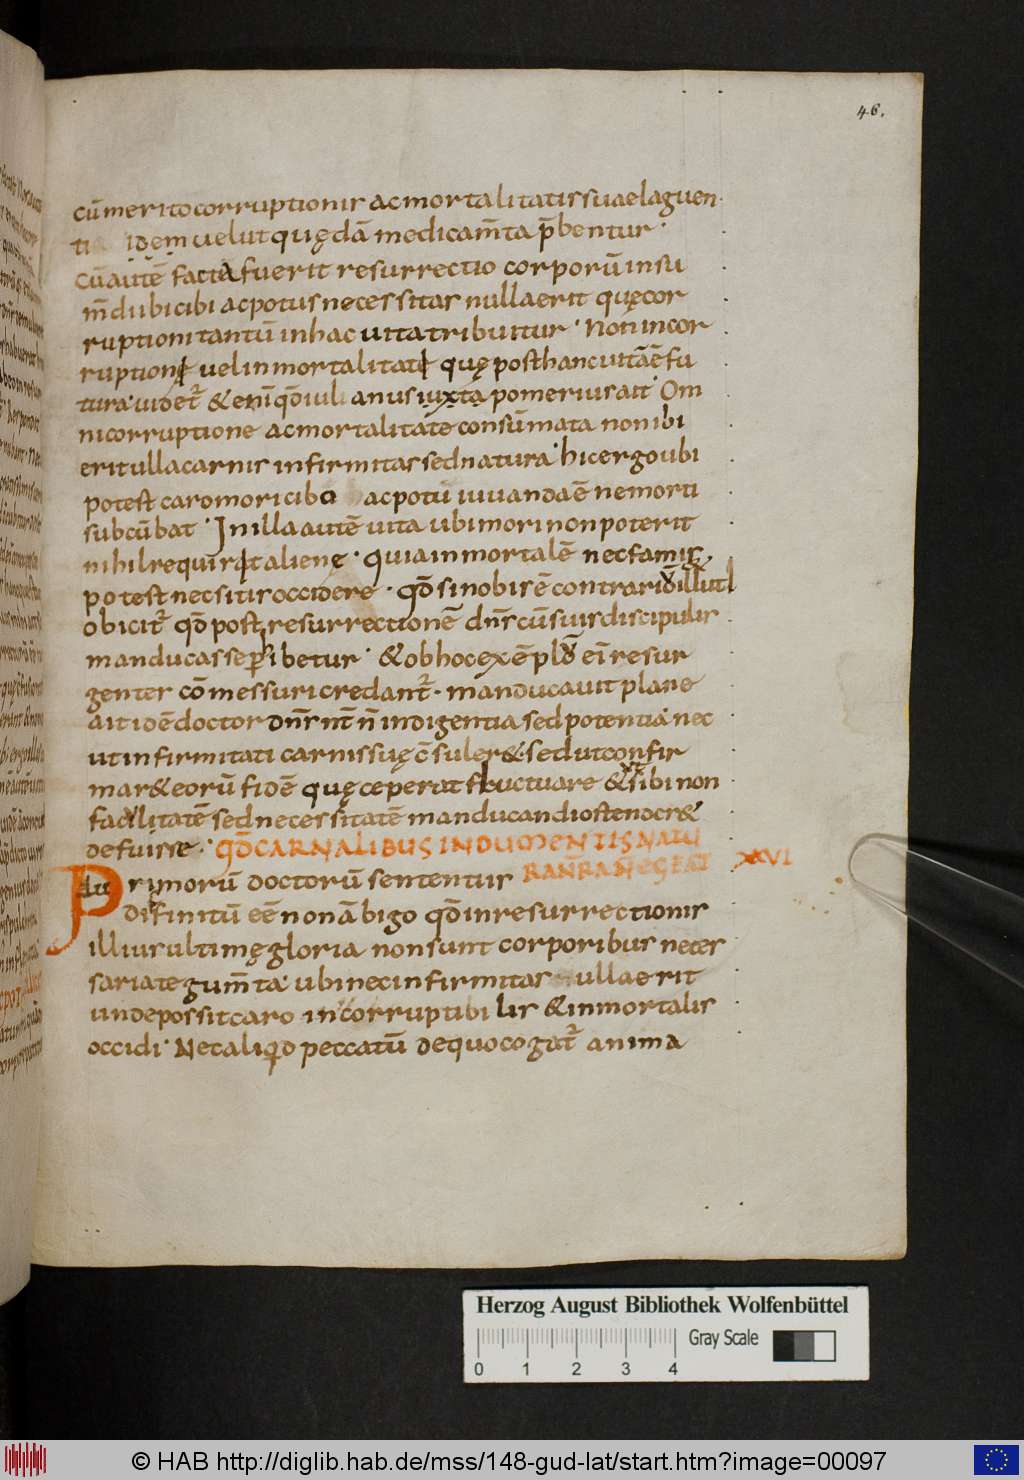 46.
cū merito corruptionis ac mortalitatis suae laguen
ti idem uelut quędā medicam̄ta p̄bentur·
cū autē facta fuerit resurrectio corporū in su
m̄di ubi cibi ac potus necessitas nulla erit quę cor
ruptioni tantū in hac uita tribuitur· Non incor
ruptione uel inmortalitate quę post hanc uitā ē fu
tura uidet̄ & eni qd̄ iulianus iuxta pomerius ait Om
ni corruptione ac mortalitate consūmata non ibi
erit ulla carnis infirmitas sed natura hic ergo ubi
potest caro mori cibo ac potu iuuanda ē ne morti
subcūbat· In illa autē uita ubi mori non poterit
nihil requirit alienę· quia inmortalē nec famis
potest nec sitis occidere· qd̄ si nobis ē contrariū illut
obicit̄ qd̄ post resurrectionē dn̄s cū suis discipulis
manducasse perhibetur· & ob hoc exēplo ei resur
genter cōmessuri credant̄· manducauit plane
ait idē doctor dn̄s nr̄ n̄ indigentia sed potentia nec
ut infirmitati carnis suę c̄suler& sed ut confir
mar& eorū fidē quę ceperat fluctuare & sibi non
facilitatē sed necessitatē manducandi ostender&
defuisse· QD̄ CARNALIBUS INDUMENTIS NATU
RA NRA N̄ EGEAT XXVI
Priorum doctorū sententiis
diffinitū eē non ābigo qd̄ in resurrectionis
illius ultimę gloria non sunt corporibus neces
saria tegum̄ta ubi nec infirmitas ulla erit
unde possit caro incorruptibilis & inmortalis
occidi· Nec aliqd̄ peccatū de quo cogat̄ anima
Herzog August Bibliothek Wolfenbüttel
Gray Scale
0 1 2 3 4
© HAB http://diglib.hab.de/mss/148-gud-lat/start.htm?image=00097